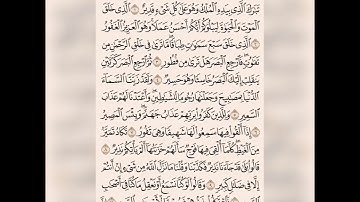 تَبَٰرَكَ ٱلَّذِى بِيَدِهِ ٱلْمُلْكُ وَهُوَ عَلَىٰ كُلِّ شَىْءٍ قَدِيرٌ ١ ٱلَّذِى خَلَقَ
ٱلْمَوْتَ وَٱلْحَيَوٰةَ لِيَبْلُوَكُمْ أَيُّكُمْ أَحْسَنُ عَمَلًا وَهُوَ ٱلْعَزِيزُ ٱلْغَفُورُ
٢ ٱلَّذِى خَلَقَ سَبْعَ سَمَٰوَٰتٍ طِبَاقًا مَّا تَرَىٰ فِى خَلْقِ ٱلرَّحْمَٰنِ مِن
تَفَٰوُتٍ فَٱرْجِعِ ٱلْبَصَرَ هَلْ تَرَىٰ مِن فُطُورٍ ٣ ثُمَّ ٱرْجِعِ ٱلْبَصَرَ كَرَّتَيْنِ
يَنقَلِبْ إِلَيْكَ ٱلْبَصَرُ خَاسِئًا وَهُوَ حَسِيرٌ ٤ وَلَقَدْ زَيَّنَّا ٱلسَّمَآءَ
ٱلدُّنْيَا بِمَصَٰبِيحَ وَجَعَلْنَٰهَا رُجُومًا لِّلشَّيَٰطِينِ وَأَعْتَدْنَا لَهُمْ عَذَابَ
ٱلسَّعِيرِ ٥ وَلِلَّذِينَ كَفَرُوا۟ بِرَبِّهِمْ عَذَابُ جَهَنَّمَ وَبِئْسَ ٱلْمَصِيرُ
٦ إِذَآ أُلْقُوا۟ فِيهَا سَمِعُوا۟ لَهَا شَهِيقًا وَهِىَ تَفُورُ ٧ تَكَادُ تَمَيَّزُ
مِنَ ٱلْغَيْظِ كُلَّمَآ أُلْقِىَ فِيهَا فَوْجٌ سَأَلَهُمْ خَزَنَتُهَآ أَلَمْ يَأْتِكُمْ نَذِيرٌ ٨
قَالُوا۟ بَلَىٰ قَدْ جَآءَنَا نَذِيرٌ فَكَذَّبْنَا وَقُلْنَا مَا نَزَّلَ ٱللَّهُ مِن شَىْءٍ إِنْ أَنتُمْ
إِلَّا فِى ضَلَٰلٍ كَبِيرٍ ٩ وَقَالُوا۟ لَوْ كُنَّا نَسْمَعُ أَوْ نَعْقِلُ مَا كُنَّا فِىٓ أَصْحَٰبِ